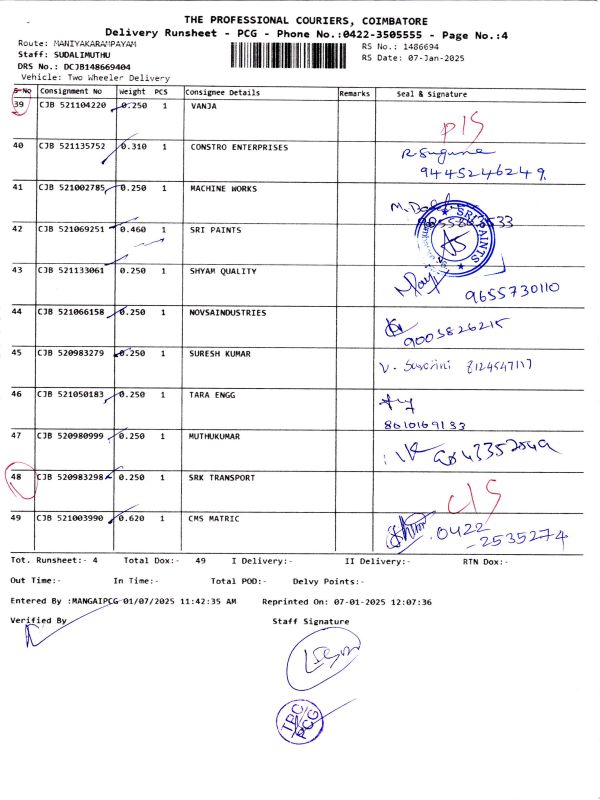 THE PROFESSIONAL COURIERS, COIMBATORE
Delivery Runsheet - PCG - Phone No.:0422-3505555 - Page No.:4
Route: MANIYAKARAMPAYAM
RS No.: 1486694
Staff: SUDALIMUTHU
RS Date: 07-Jan-2025
DRS No.: DCJB148669404
Vehicle: Two Wheeler Delivery
S-No Consignment No Weight PCS Consignee Details Remarks Seal & Signature
39 CJB 521104220 0.250 1 VANJA
P/S
40 CJB 521135752 0.310 1 CONSTRO ENTERPRISES
R. Suguna
9445246249
41 CJB 521002785 0.250 1 MACHINE WORKS
42 CJB 521069251 0.460 1 SRI PAINTS
SRI PAINTS
43 CJB 521133061 0.250 1 SHYAM QUALITY
9655730110
44 CJB 521066158 0.250 1 NOVSAINDUSTRIES
9003826215
45 CJB 520983279 0.250 1 SURESH KUMAR
8124547117
46 CJB 521050183 0.250 1 TARA ENGG
8610169133
47 CJB 520980999 0.250 1 MUTHUKUMAR
48 CJB 520983298 0.250 1 SRK TRANSPORT
C/S
49 CJB 521003990 0.620 1 CMS MATRIC
0422
-2535274
Tot. Runsheet:- 4 Total Dox:- 49 I Delivery:- II Delivery:- RTN Dox:-
Out Time:- In Time:- Total POD:- Delvy Points:-
Entered By :MANGAIPCG 01/07/2025 11:42:35 AM Reprinted On: 07-01-2025 12:07:36
Verified By Staff Signature
TPC
PCG